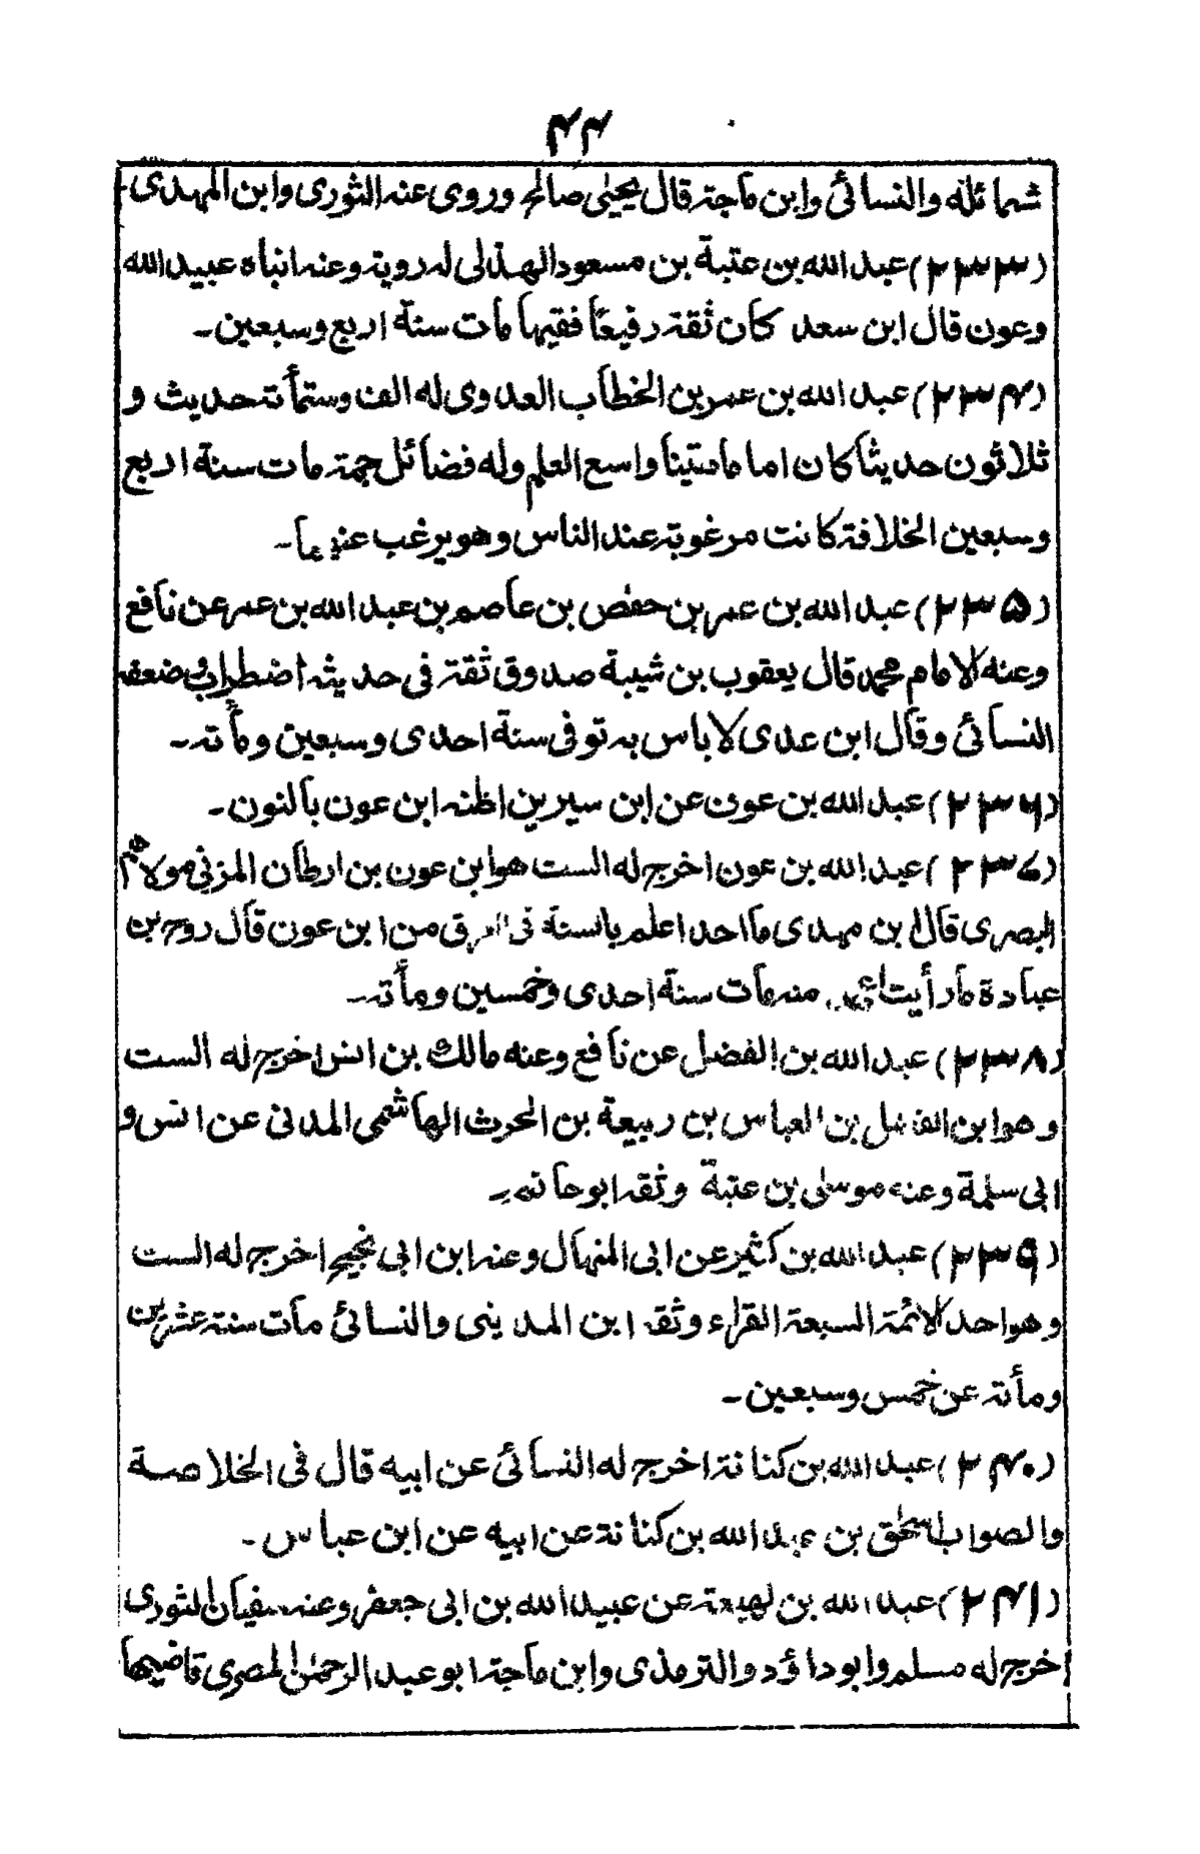 ۴۴
شمائله والنسائی وابن ماجة قال یحیٰی صالح وروی عنه الثوری وابن المهدی
(۲۳۳) عبد الله بن عتبة بن مسعود الهذلی له رویة وعنه ابناه عبید الله
وعون قال ابن سعد کان ثقة رفیعًا فقیها مات سنة اربع وسبعین۔
(۲۳۴) عبد الله بن عمر بن الخطاب العدوی له الف وستمأئة حدیث و
ثلاثون حدیثا کان اماما متینا واسع العلم وله فضائل جمة مات سنة اربع
وسبعین الخلافة کانت مرغوبة عند الناس وهو یرغب عنها۔
(۲۳۵) عبد الله بن عمر بن حفص بن عاصم بن عبد الله بن عمر عن نافع
وعنه الامام محمد قال یعقوب بن شیبة صدوق ثقة فی حدیثه اضطراب ضعفه
النسائی وقال ابن عدی لا باس به توفی سنة احدی وسبعین ومأئة۔
(۲۳۶) عبد الله بن عون عن ابن سیرین اظنه ابن عون بالنون۔
(۲۳۷) عبد الله بن عون اخرج له الست هو ابن عون بن ارطان المزنی مولاهم
البصری قال ابن مهدی ما احد اعلم بالسنة فی من ابن عون قال روح بن
عبادة ما رأیت منه مات سنة احدی وخمسین ومأئة۔
(۲۳۸) عبد الله بن الفضل عن نافع وعنه مالك بن انس اخرج له الست
وهو ابن الفضل بن العباس بن ربیعة بن الحرث الهاشمی المدنی عن انس و
ابی سلمة وعنه موسٰی بن عتبة وثقه ابو حاتم۔
(۲۳۹) عبد الله بن کثیر عن ابی المنهال وعنه ابن ابی نجیح اخرج له الست
وهو احد الائمة السبعة القراء وثقه ابن المدینی والنسائی مات سنة عشرین
ومأئة عن خمس وسبعین۔
(۲۴۰) عبد الله بن کنانة اخرج له النسائی عن ابیه قال فی الخلاصة
والصواب اسحٰق بن عبد الله بن کنانة عن ابیه عن ابن عباس۔
(۲۴۱) عبد الله بن لهیعة عن عبید الله بن ابی جعفر وعنه سفیان الثوری
اخرج له مسلم وابو داؤد والترمذی وابن ماجة ابو عبد الرحمٰن المصری قاضیها